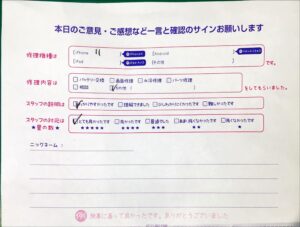 本日のご意見・ご感想など一言と確認のサインお願いします
修理機種は
iPhone 11
Android
iPad
その他
です。
修理内容は
□バッテリー交換 □画面修理 □水没修理 □パーツ修理
□相談 ☑その他
をしてもらいました。
スタッフの説明は
☑わかりやすかったです □理解できました □少しわかりにくかったです □難しかったです
スタッフの対応は
★星の数★
☑とても良かったです □良かったです □普通でした □あまり良くなかったです □良くなかったです
★★★★★ ★★★★ ★★★ ★★ ★
ニックネーム：